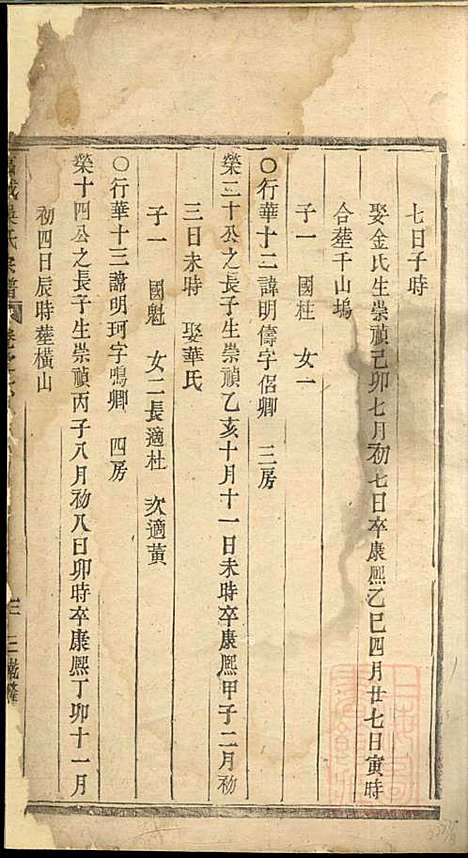 七日子時
娶金氏生崇禎己卯七月初七日卒康熙乙巳四月廿七日寅時
合塟千山塢
子一 國柱 女一
〇行華十二諱明儔字侶卿 三房
榮三十公之長子生崇禎乙亥十月十一日未時卒康熙甲子二月初
三日未時 娶華氏
子一 國魁 女二長適杜 次適黄
〇行華十三諱明珂字鳴卿 四房
榮十四公之長子生崇禎丙子八月初八日卯時卒康熙丁卯十一月
初四日辰時塟橫山
吳氏宗譜